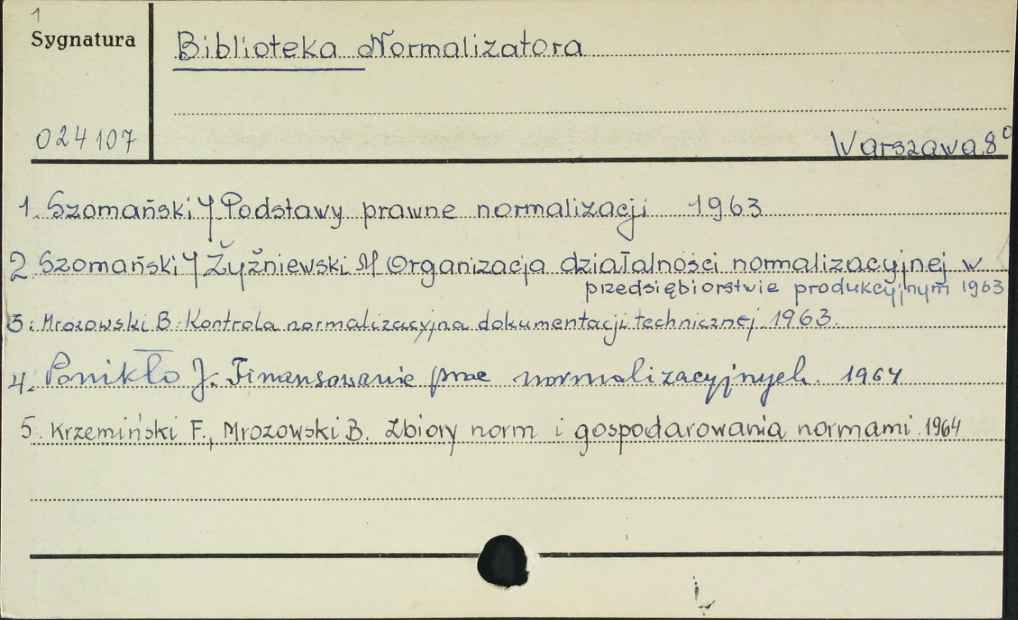 1
Sygnatura
Biblioteka Normalizatora
024107
Warszawa 8°
1. Szomański J Podstawy prawne normalizacji 1963
2 Szomański J Żyżniewski M Organizacja działalności normalizacyjnej w
przedsiębiorstwie produkcyjnym 1963
3. Mrozowski B. Kontrola normalizacyjna dokumentacji technicznej 1963.
4. Ponikło J. Finansowanie prac normalizacyjnych. 1964
5. Krzemiński F., Mrozowski B. Zbiory norm i gospodarowania normami 1964